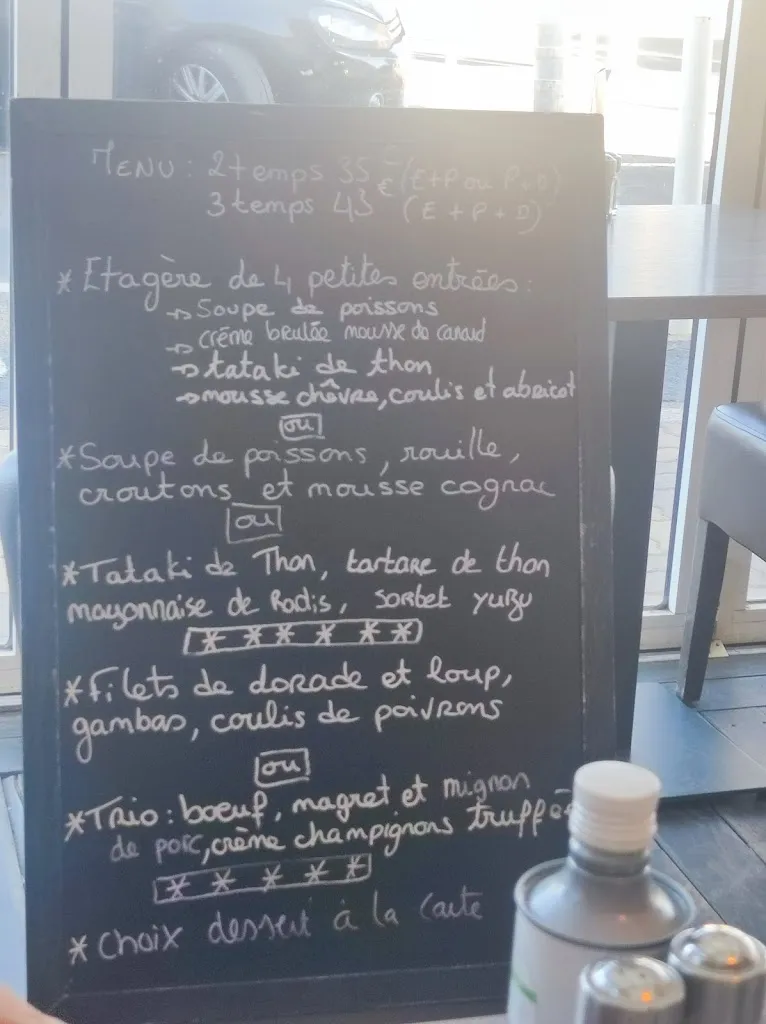 MENU : 2 temps 35 € (E+P ou P+D)
3 temps 43 € (E+P+D)
* Etagère de 4 petites entrées :
→ Soupe de poissons
→ crème brulée mousse de canard
→ tataki de thon
→ mousse chêvre, coulis et abricot
ou
* Soupe de poissons, rouille,
croutons et mousse cognac
ou
* Tataki de Thon, tartare de thon
mayonnaise de Radis, sorbet yuzu
* * * * * *
* Filets de dorade et loup,
gambas, coulis de poivrons
ou
* Trio : boeuf, magret et mignon
de porc, crème champignons truffée
* * * * *
* Choix dessert à la carte